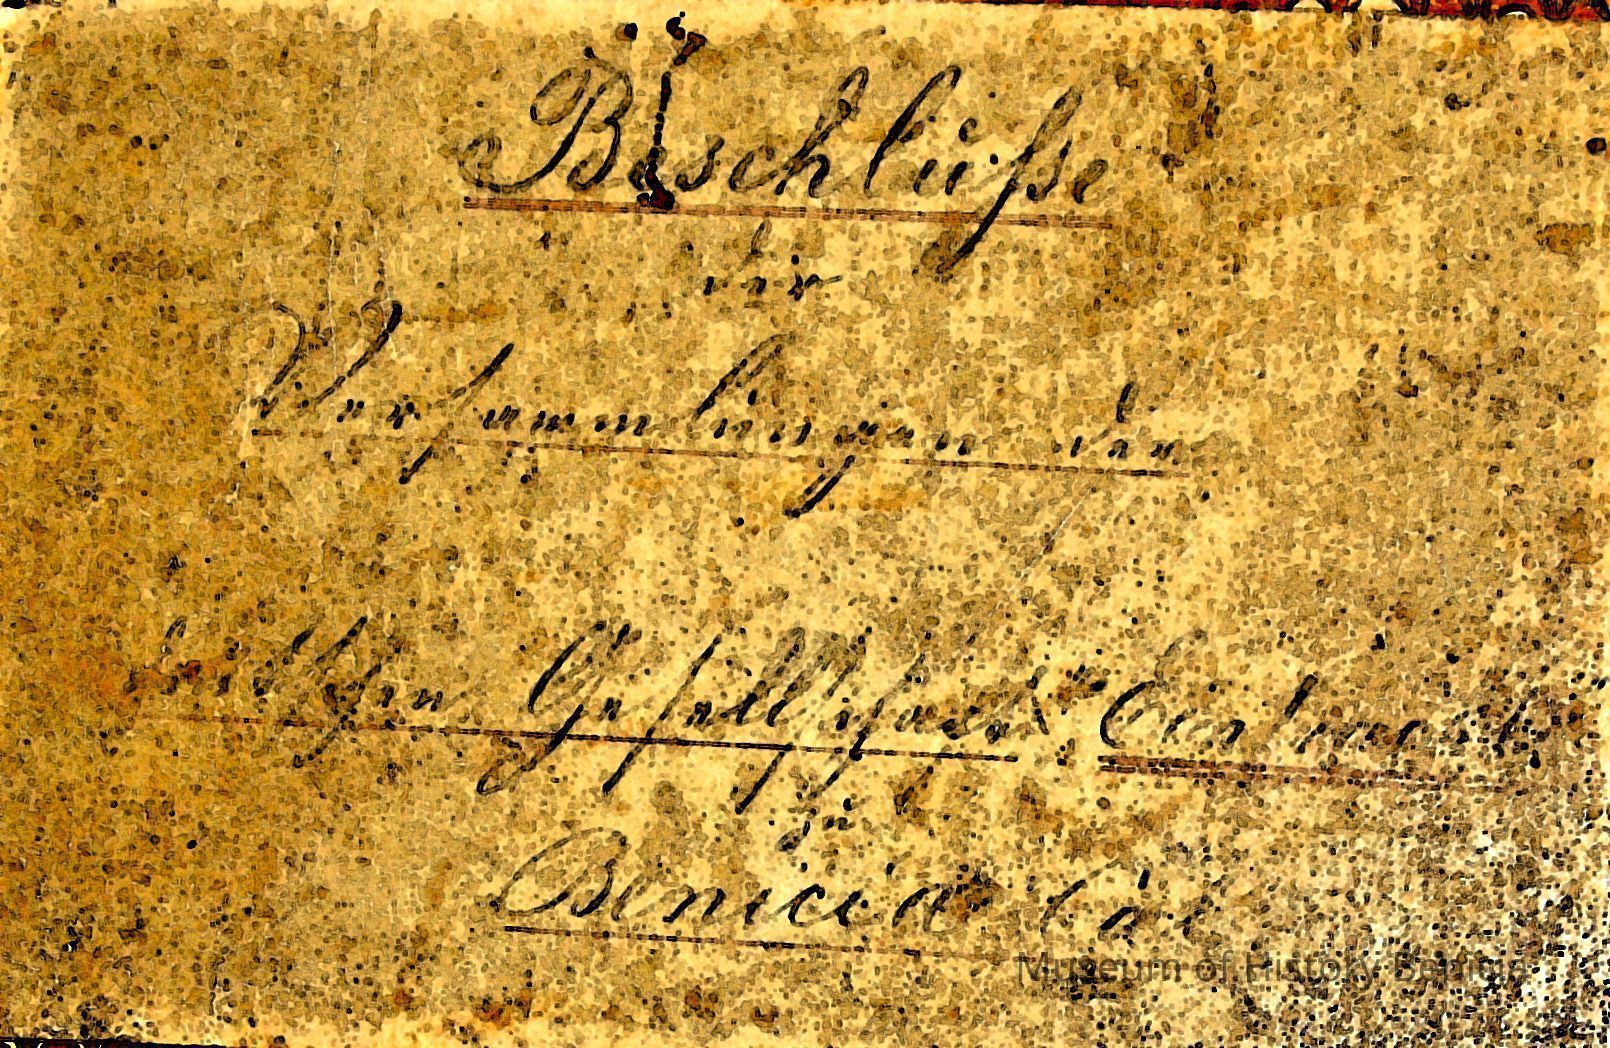 Beschlüße
der
Versammlungen der
deutschen Gesellschaft Eintracht
zu
Benicia Cal
Museum of History Benicia